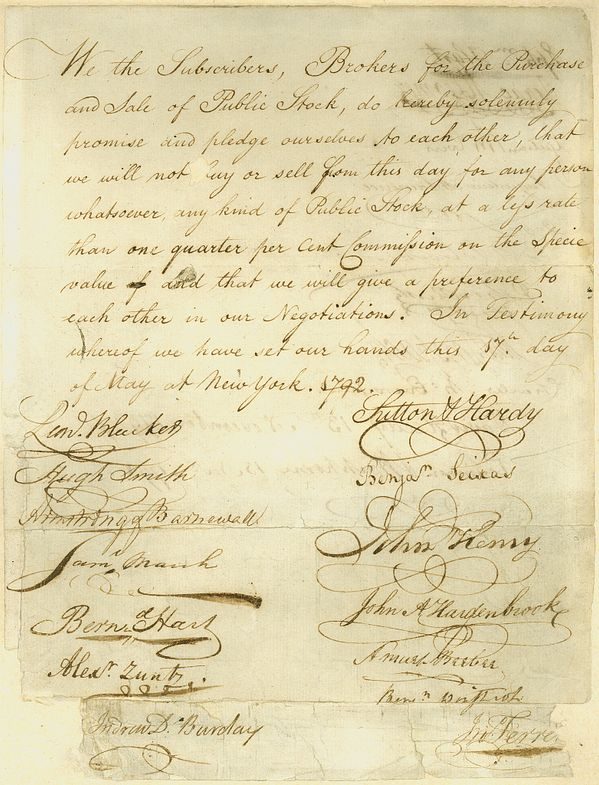 We the Subscribers, Brokers for the Purchase
and Sale of Public Stock, do hereby solemnly
promise and pledge ourselves to each other, that
we will not buy or sell from this day for any person
whatsoever, any kind of Public Stock, at a less rate
than one quarter per Cent Commission on the Specie
value of and that we will give a preference to
each other in our Negotiations. In Testimony
whereof we have set our hands this 17th day
of May at New York. 1792.
Leond. Bleecker
Sutton & Hardy
Hugh Smith
Benjan. Seixas
Armstrong & Barnewall
John Henry
Saml. March
John A Hardenbrook
Bernd. Hart
Amurt Beebee
Alexr. Zuntz
Andrew D. Barclay